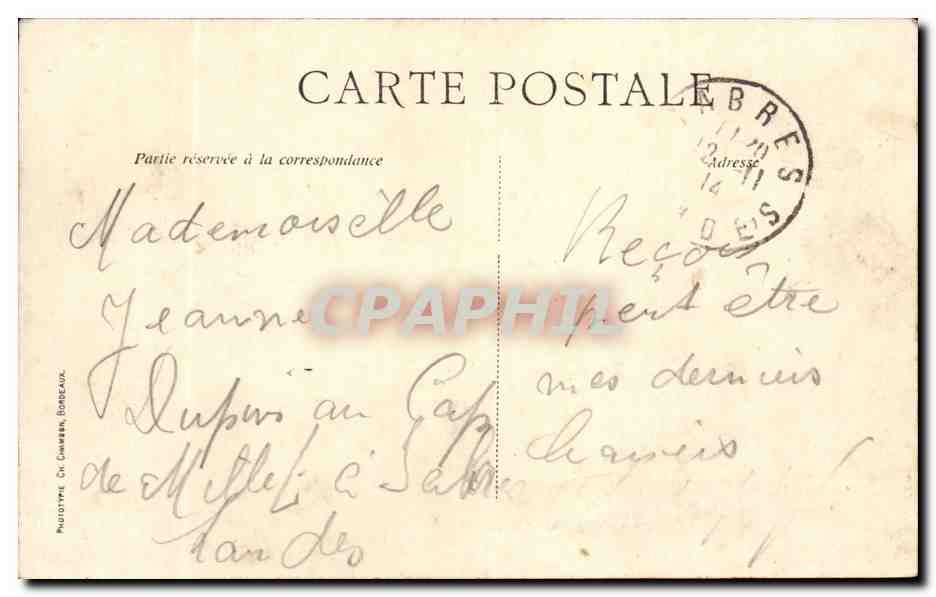 CARTE POSTALE
Partie réservée à la correspondance
Adresse
ABRES
11 20
12 - 11
14
DES
Mademoiselle
Jeanne
Dupin au Cap
de à Sabres
Landes
Reçois
peut être
mes derniers
baisers
CPAPHIL
PHOTOTYPIE CH. CHAMBON, BORDEAUX.